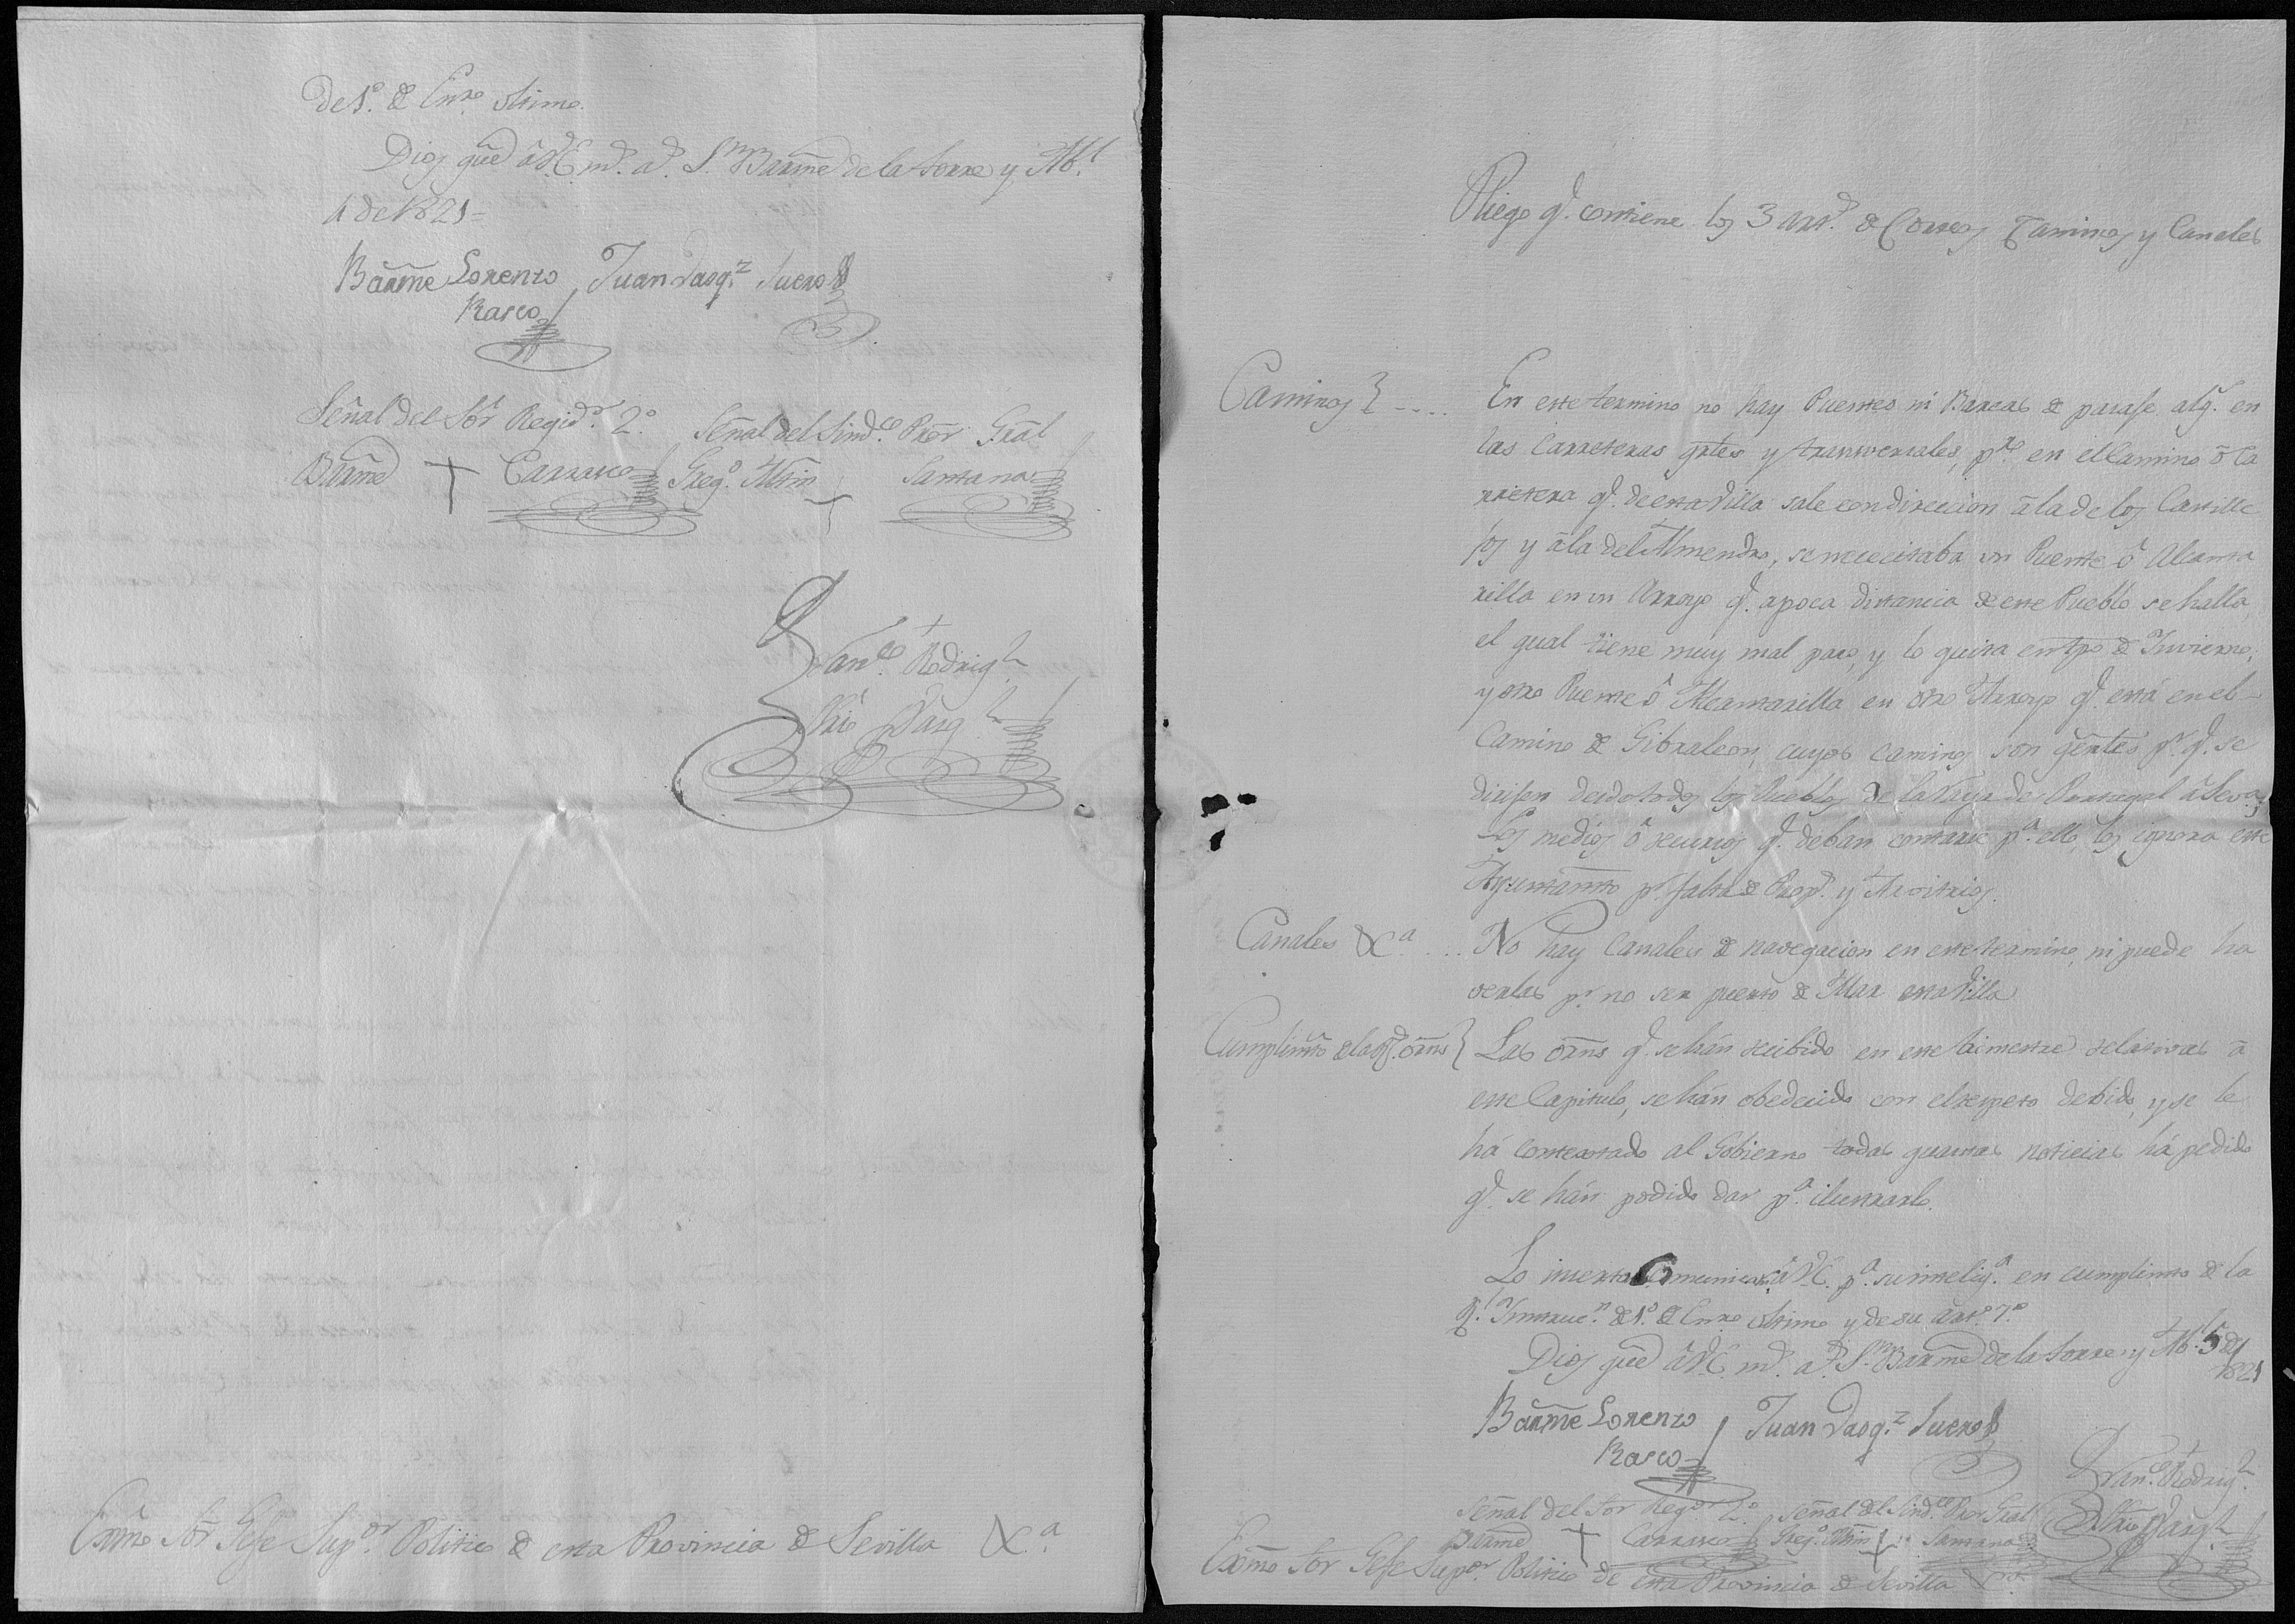 de 1º. de Enrº ultimo.
Dios gũe â V.E. mˢ. aˢ. Sⁿ Barmẽ de la Torre y Abˡ.
4 de 1821=
Barmẽ Lorenzo Juan Vasqᶻ Suero
Rasco
Señal del Sõr Regidᵒʳ. 2º. Señal del Sindᶜᵒ Prõr Grãl
Barmẽ + Carrasco Gregº. Mtñn + Santana
Franᶜᵒ Rodrigᶻ
Srío Vasqᶻ
Exm̃o Sõr Gefe Supᵒʳ Politico de esta Provincia de Sevilla &ᵃ
Pliego qᵉ. contiene los 3 artˢ. de Correos Caminos y Canales
Caminos} .... En este termino no hay Puentes ni Barcas de pasase algº. en
las Carreteras grles y tranversales, pº en el Camino ô Ca
rretera qᵉ. de esta Villa sale con direccion â la de los Castille
jos y â la del Almendro, se nececitaba un Puente ô Alcanta
rilla en un Arroyo qᵉ. a poca distancia de este Pueblo se halla,
el qual tiene muy mal paso, y lo quita en tpõ de Invierno;
y otro Puente ô Alcantarilla en otro Arroyo qᵉ. está en el
Camino de Gibraleon, cuyos caminos son gẽrales pʳ. qᵉ. se
dirijen desde todos los Pueblos de la Raya de Portugal â Sevᵃ.
Los medios ô recursos qᵉ. deban contarse pᵃ. ello, los ignora este
Ayuntamtõ pʳ. falta de Propˢ. y Arvitrios.
Canales &ᵃ .... No hay Canales de navegacion en este termino, ni puede ha
verlas pʳ. no ser puerto de Mar esta Villa
Cumplimtõ de las orñs} Las orñs qᵉ. se hán recibido en este trimestre relativas â
este Capitulo, se hán obedecido con el respeto debido, y se le
há contextado al Gobierno todas quantas noticias há pedido
qᵉ. se hán podido dar pᵃ. ilustrarlo.
Lo inserto Comunica â V.E. pᵃ. su inteligᵃ. en cumplimto de la
Rˡ. Instrucⁿ. de 1º. de Enrº ultimo y de su artº. 7º.
Dios gũe â V.E. mˢ. aˢ. Sⁿ Barmẽ de la Torre y Abˡ. 5 de
1821
Barmẽ Lorenzo Juan Vasqᶻ Suero
Rasco
Franᶜᵒ Rodrigᶻ
Señal del Sor Regᵒʳ 2º. Señal del Sindᶜᵒ Pror Gral
Srío Vasqᶻ
Barmẽ + Carrasco Gregº. Mtñn + Santana
Exm̃o Sõr Gefe Supᵒʳ Politico de esta Provincia de Sevilla